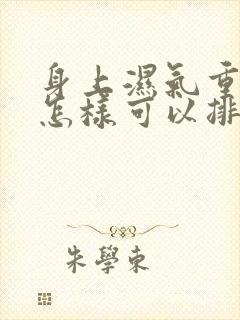 身上濕氣重
怎樣可以排
朱學東